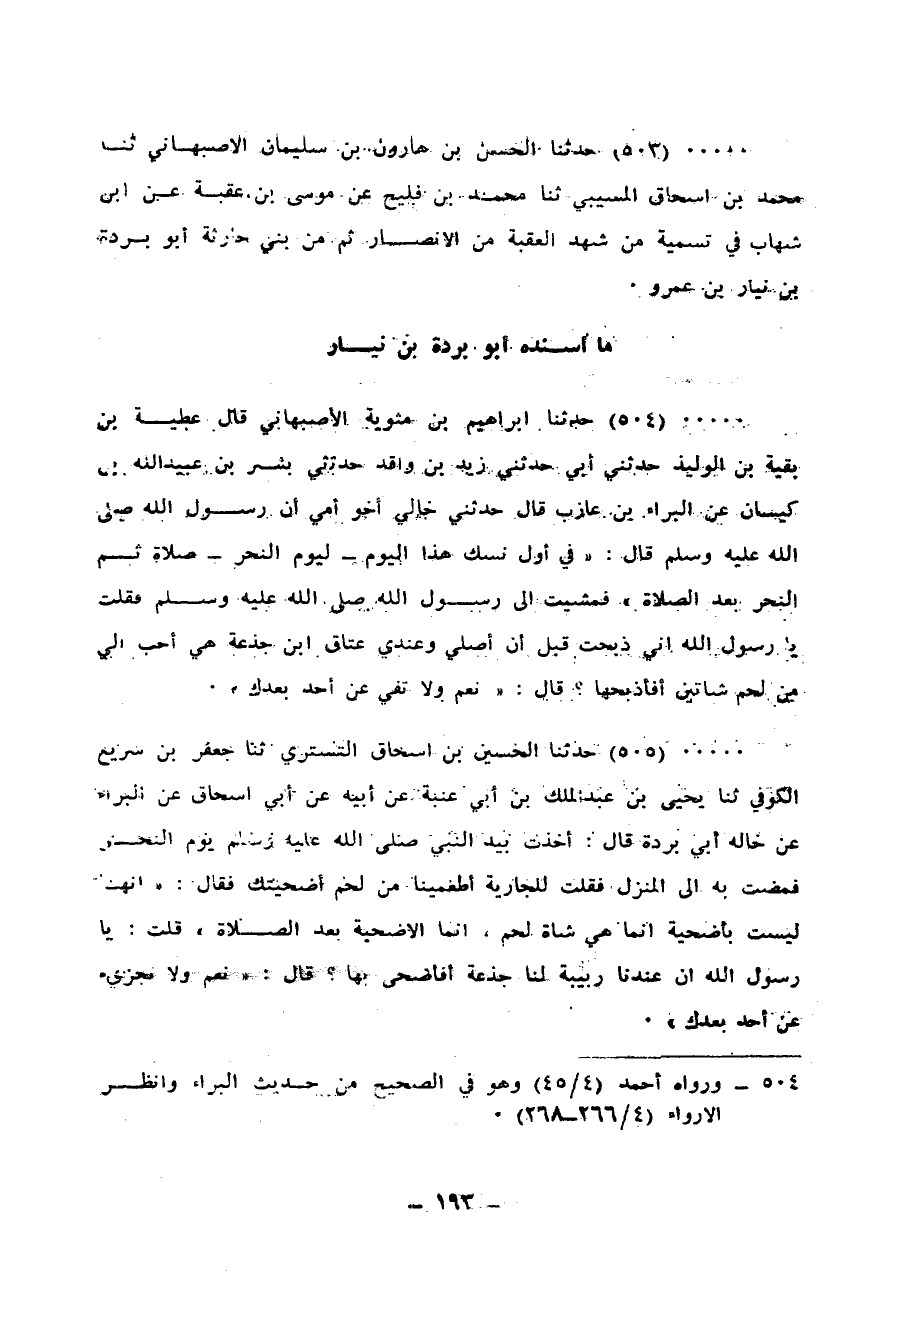 ٠٠٠٠٠ (٥٠٣) حدثنا الحسن بن هارون بن سليمان الاصبهاني ثنا
محمد بن اسحاق المسيبي ثنا محمد بن فليح عن موسى بن عقبة عن ابن
شهاب في تسمية من شهد العقبة من الانصار ثم من بني حارثة أبو بردة
بن نيار بن عمرو ٠
ما أسنده أبو بردة بن نيار
٠٠٠٠٠ (٥٠٤) حدثنا ابراهيم بن متوية الأصبهاني قال عطية بن
بقية بن الوليد حدثني أبي حدثني زيد بن واقد حدثني بشر بن عبيدالله بن
كيسان عن البراء بن عازب قال حدثني خالي أخو أمي أن رسول الله صلى
الله عليه وسلم قال : « في أول نسك هذا اليوم – ليوم النحر – صلاة ثم
النحر بعد الصلاة » فمشيت الى رسول الله صلى الله عليه وسلم فقلت
يا رسول الله اني ذبحت قبل أن أصلي وعندي عتاق ابن جذعة هي أحب الي
من لحم شاتين أفأذبحها ؟ قال : « نعم ولا تفي عن أحد بعدك » ٠
٠٠٠٠٠ (٥٠٥) حدثنا الحسين بن اسحاق التستري ثنا جعفر بن سريع
الكوفي ثنا يحيى بن عبدالملك بن أبي عنبة عن أبيه عن أبي اسحاق عن البراء
عن خاله أبي بردة قال : أخذت بيد النبي صلى الله عليه وسلم يوم النحر
فمضت به الى المنزل فقلت للجارية أطعمينا من لحم أضحيتك فقال : « انها
ليست بأضحية انما هي شاة لحم ، انما الاضحية بعد الصلاة » قلت : يا
رسول الله ان عندنا ربيبة لنا جذعة أفأضحى بها ؟ قال : « نعم ولا تجزي
عن أحد بعدك » ٠
٥٠٤ – ورواه أحمد (٤٥/٤) وهو في الصحيح من حديث البراء وانظر
الارواء (٢٦٦/٤–٢٦٨) ٠
– ١٩٣ –